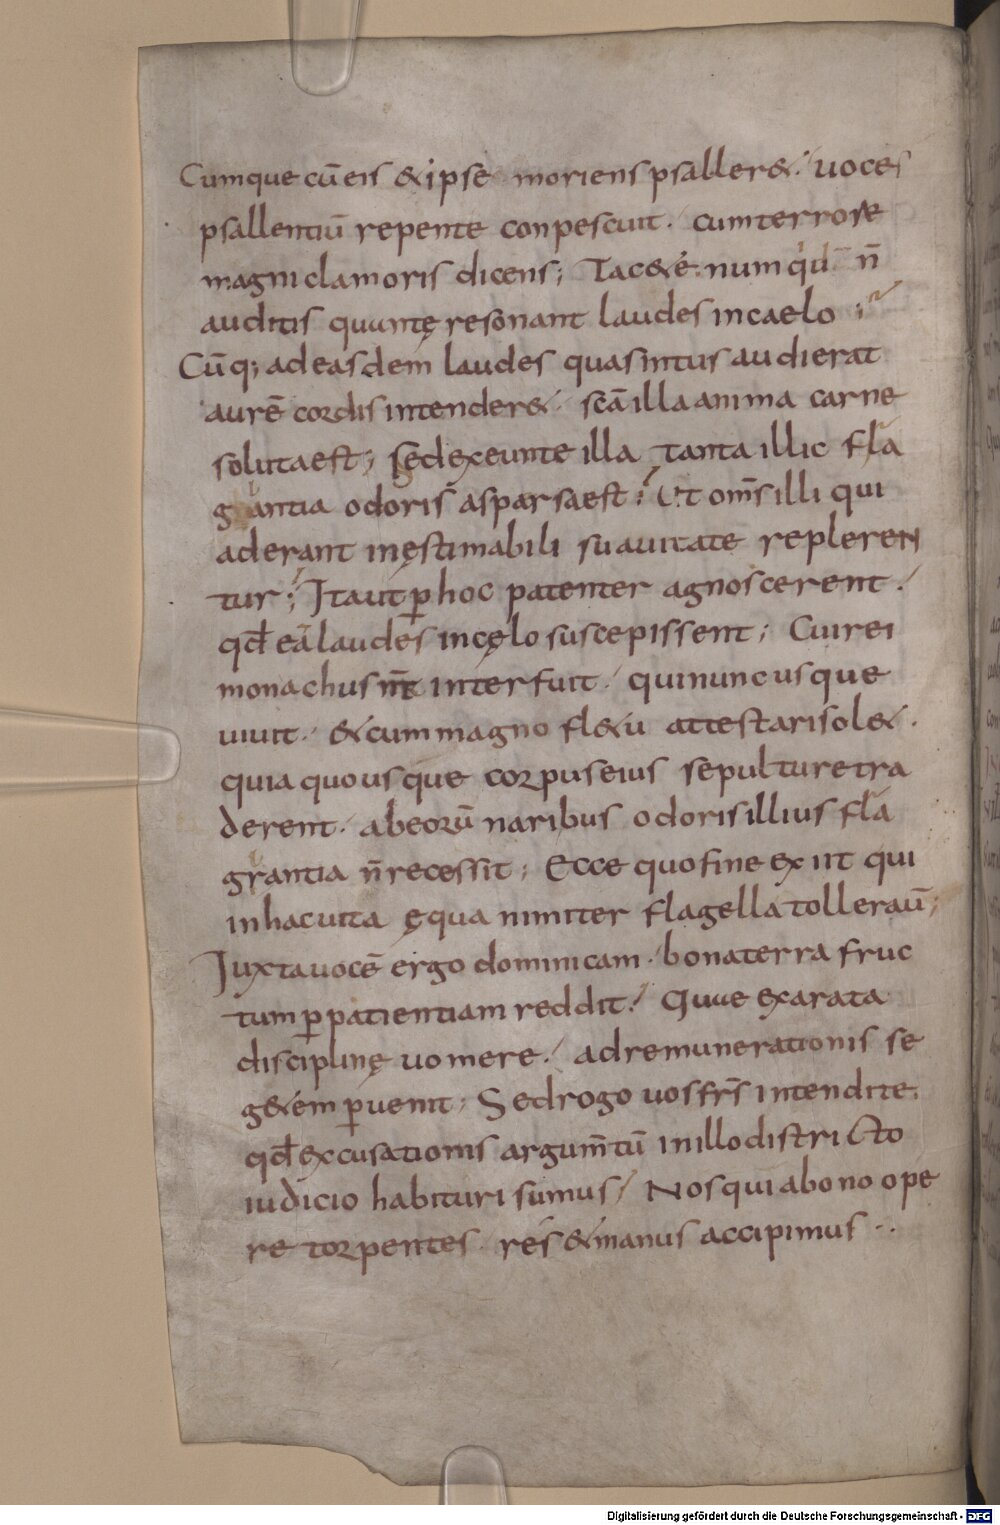 Cumque cū eis & ipse moriens psaller&. uoces
psallentiū repente conpescuit. cum terrore
magni clamoris dicens; Tac&e. numqd n̄
auditis quantę resonant laudes in caelo;
Cūq; ad easdem laudes quas intus audierat
aurē cordis intender&. scā illa anima carne
soluta est; sed exeunte illa tanta illic fla
grantia odoris asparsa est; Ut om̄s illi qui
aderant inęstimabili suauitate repleren
tur; Ita ut ꝑ hoc patenter agnoscerent.
qđ eā laudes in cęlo suscepissent; Cui rei
monachus interfuit. qui nunc usque
uiuit. & cum magno fl&u attestari sol&.
quia quousque corpus eius sepulture tra
derent. ab eorū naribus odoris illius fla
grantia n̄ recessit; Ecce quo fine exiit qui
in hac uita ęquanimiter flagella tollerau̅;
Iuxta uocē ergo dominicam. bona terra fruc
tum ꝑ patientiam reddit. Quae exarata
disciplinę uomere. ad remunerationis se
g&em ꝑuenit; Sed rogo uos fr̄s intendite.
qđ excusationis argum̄tū in illo districto
iudicio habituri sumus. Nos qui a bono ope
re torpentes. res & manus accipimus..
Digitalisierung gefördert durch die Deutsche Forschungsgemeinschaft - DFG